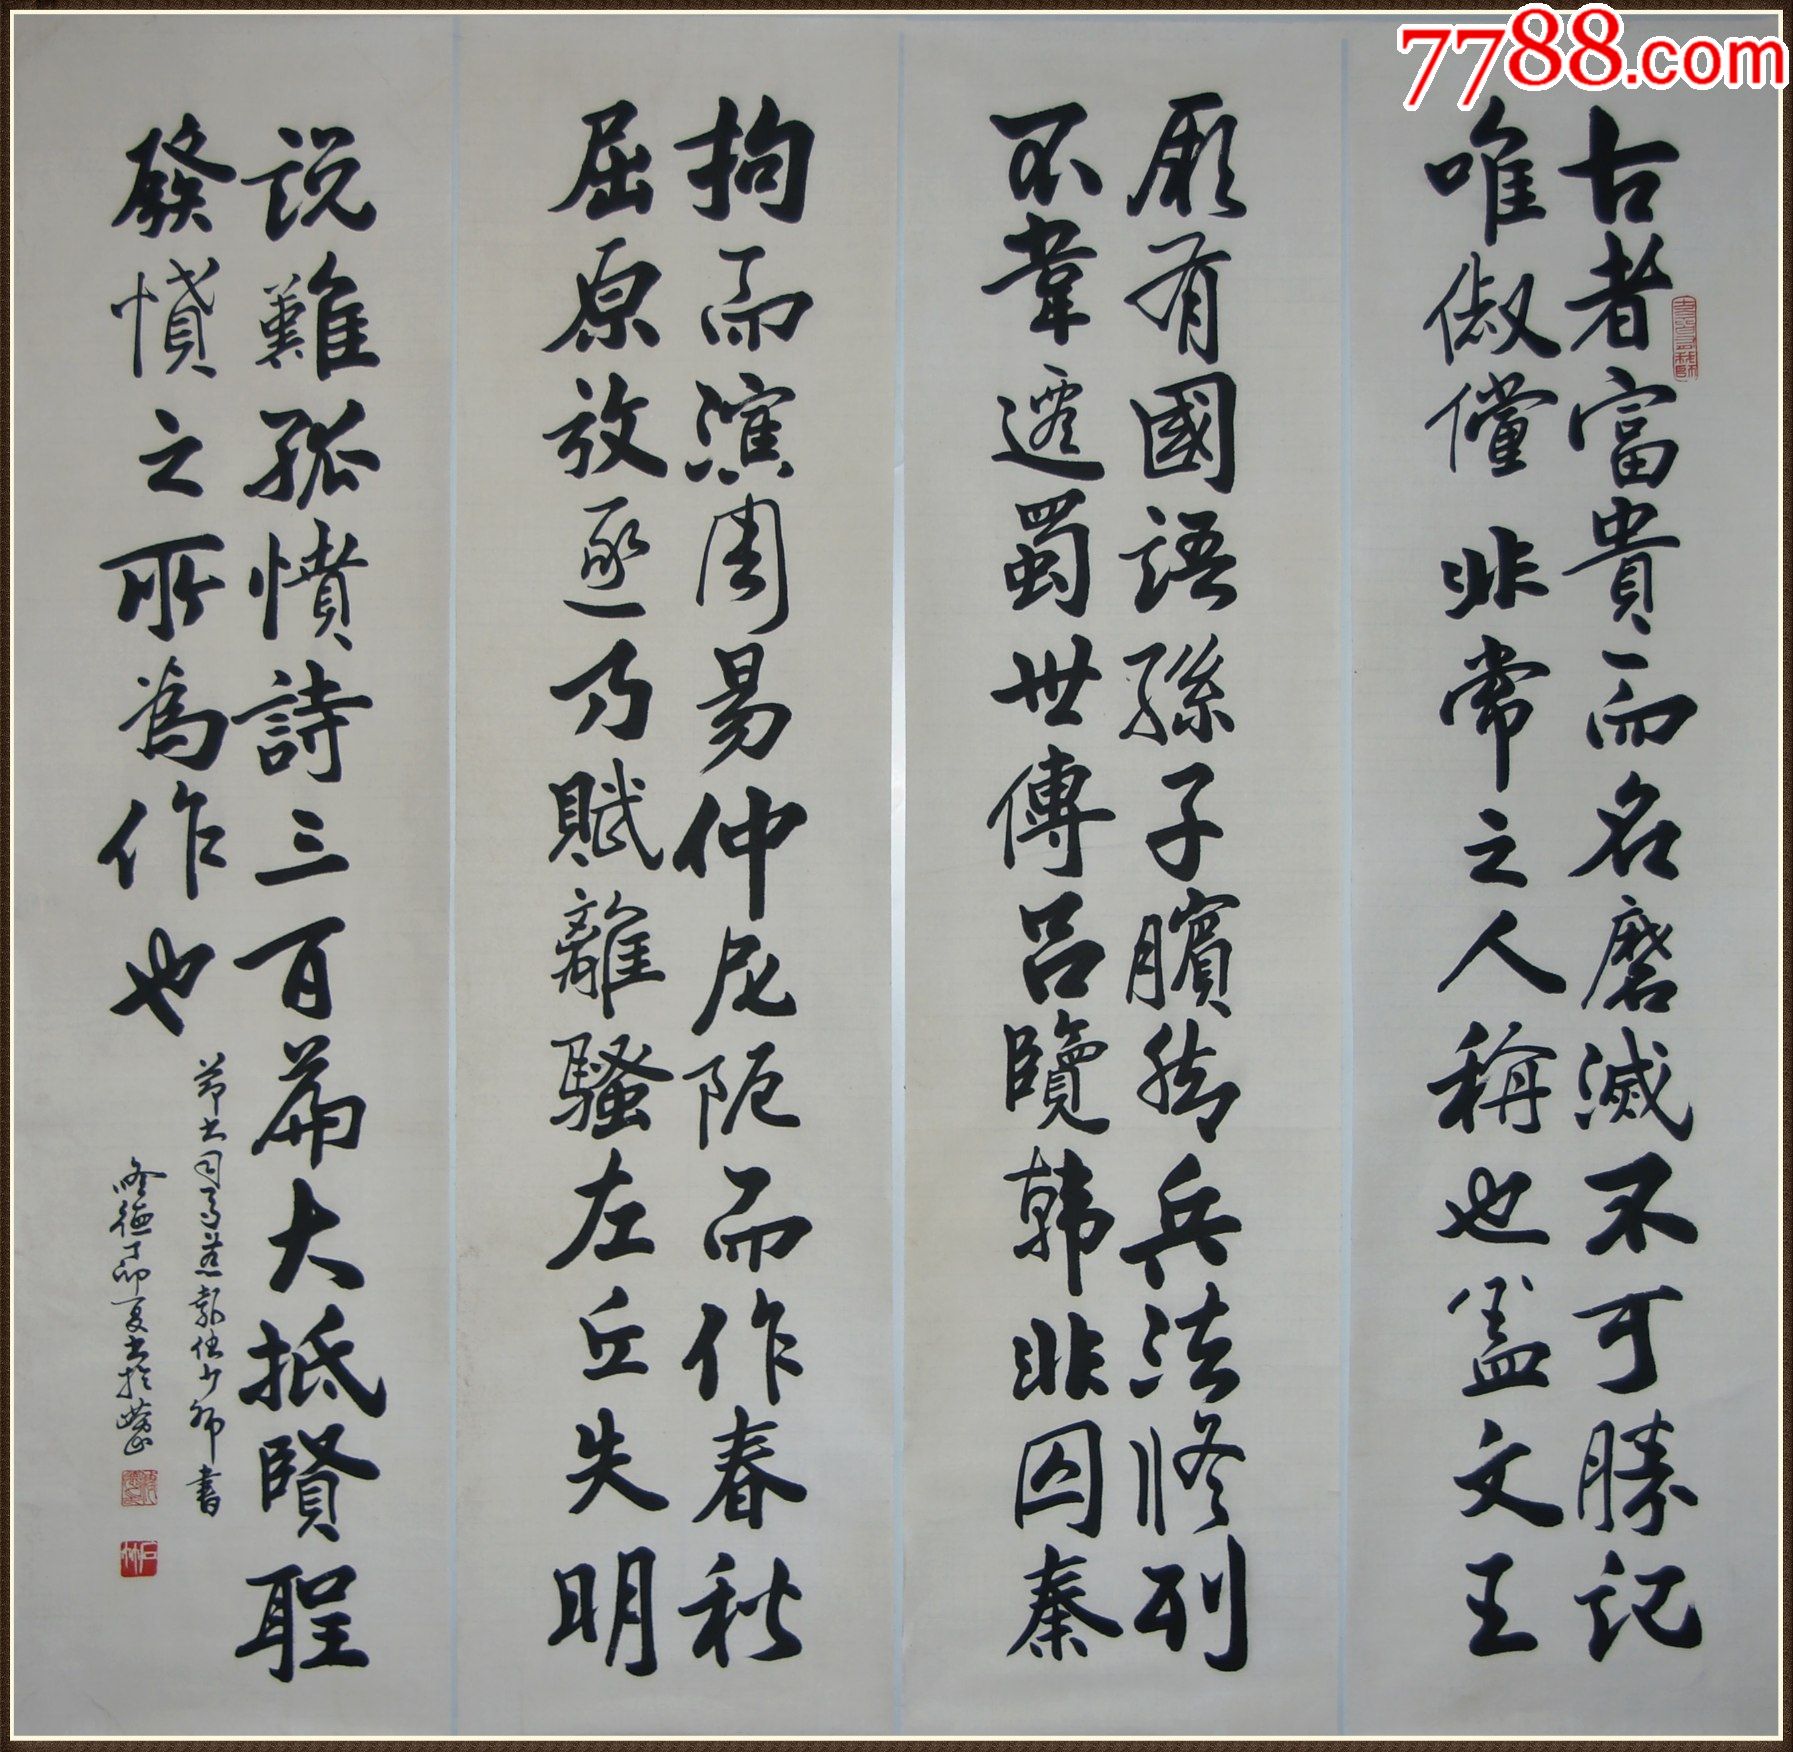 7788.com
古者富貴而名磨滅不可勝記
唯俶儻非常之人稱也盖文王
拘而演周易仲尼阨而作春秋
屈原放逐乃賦離騷左丘失明
厥有國語孫子臏脚兵法修列
不韋遷蜀世傳吕覽韓非囚秦
説難孤憤詩三百篇大抵賢聖
發憤之所為作也
節太司馬遷報任少卿書
丁卯夏書於